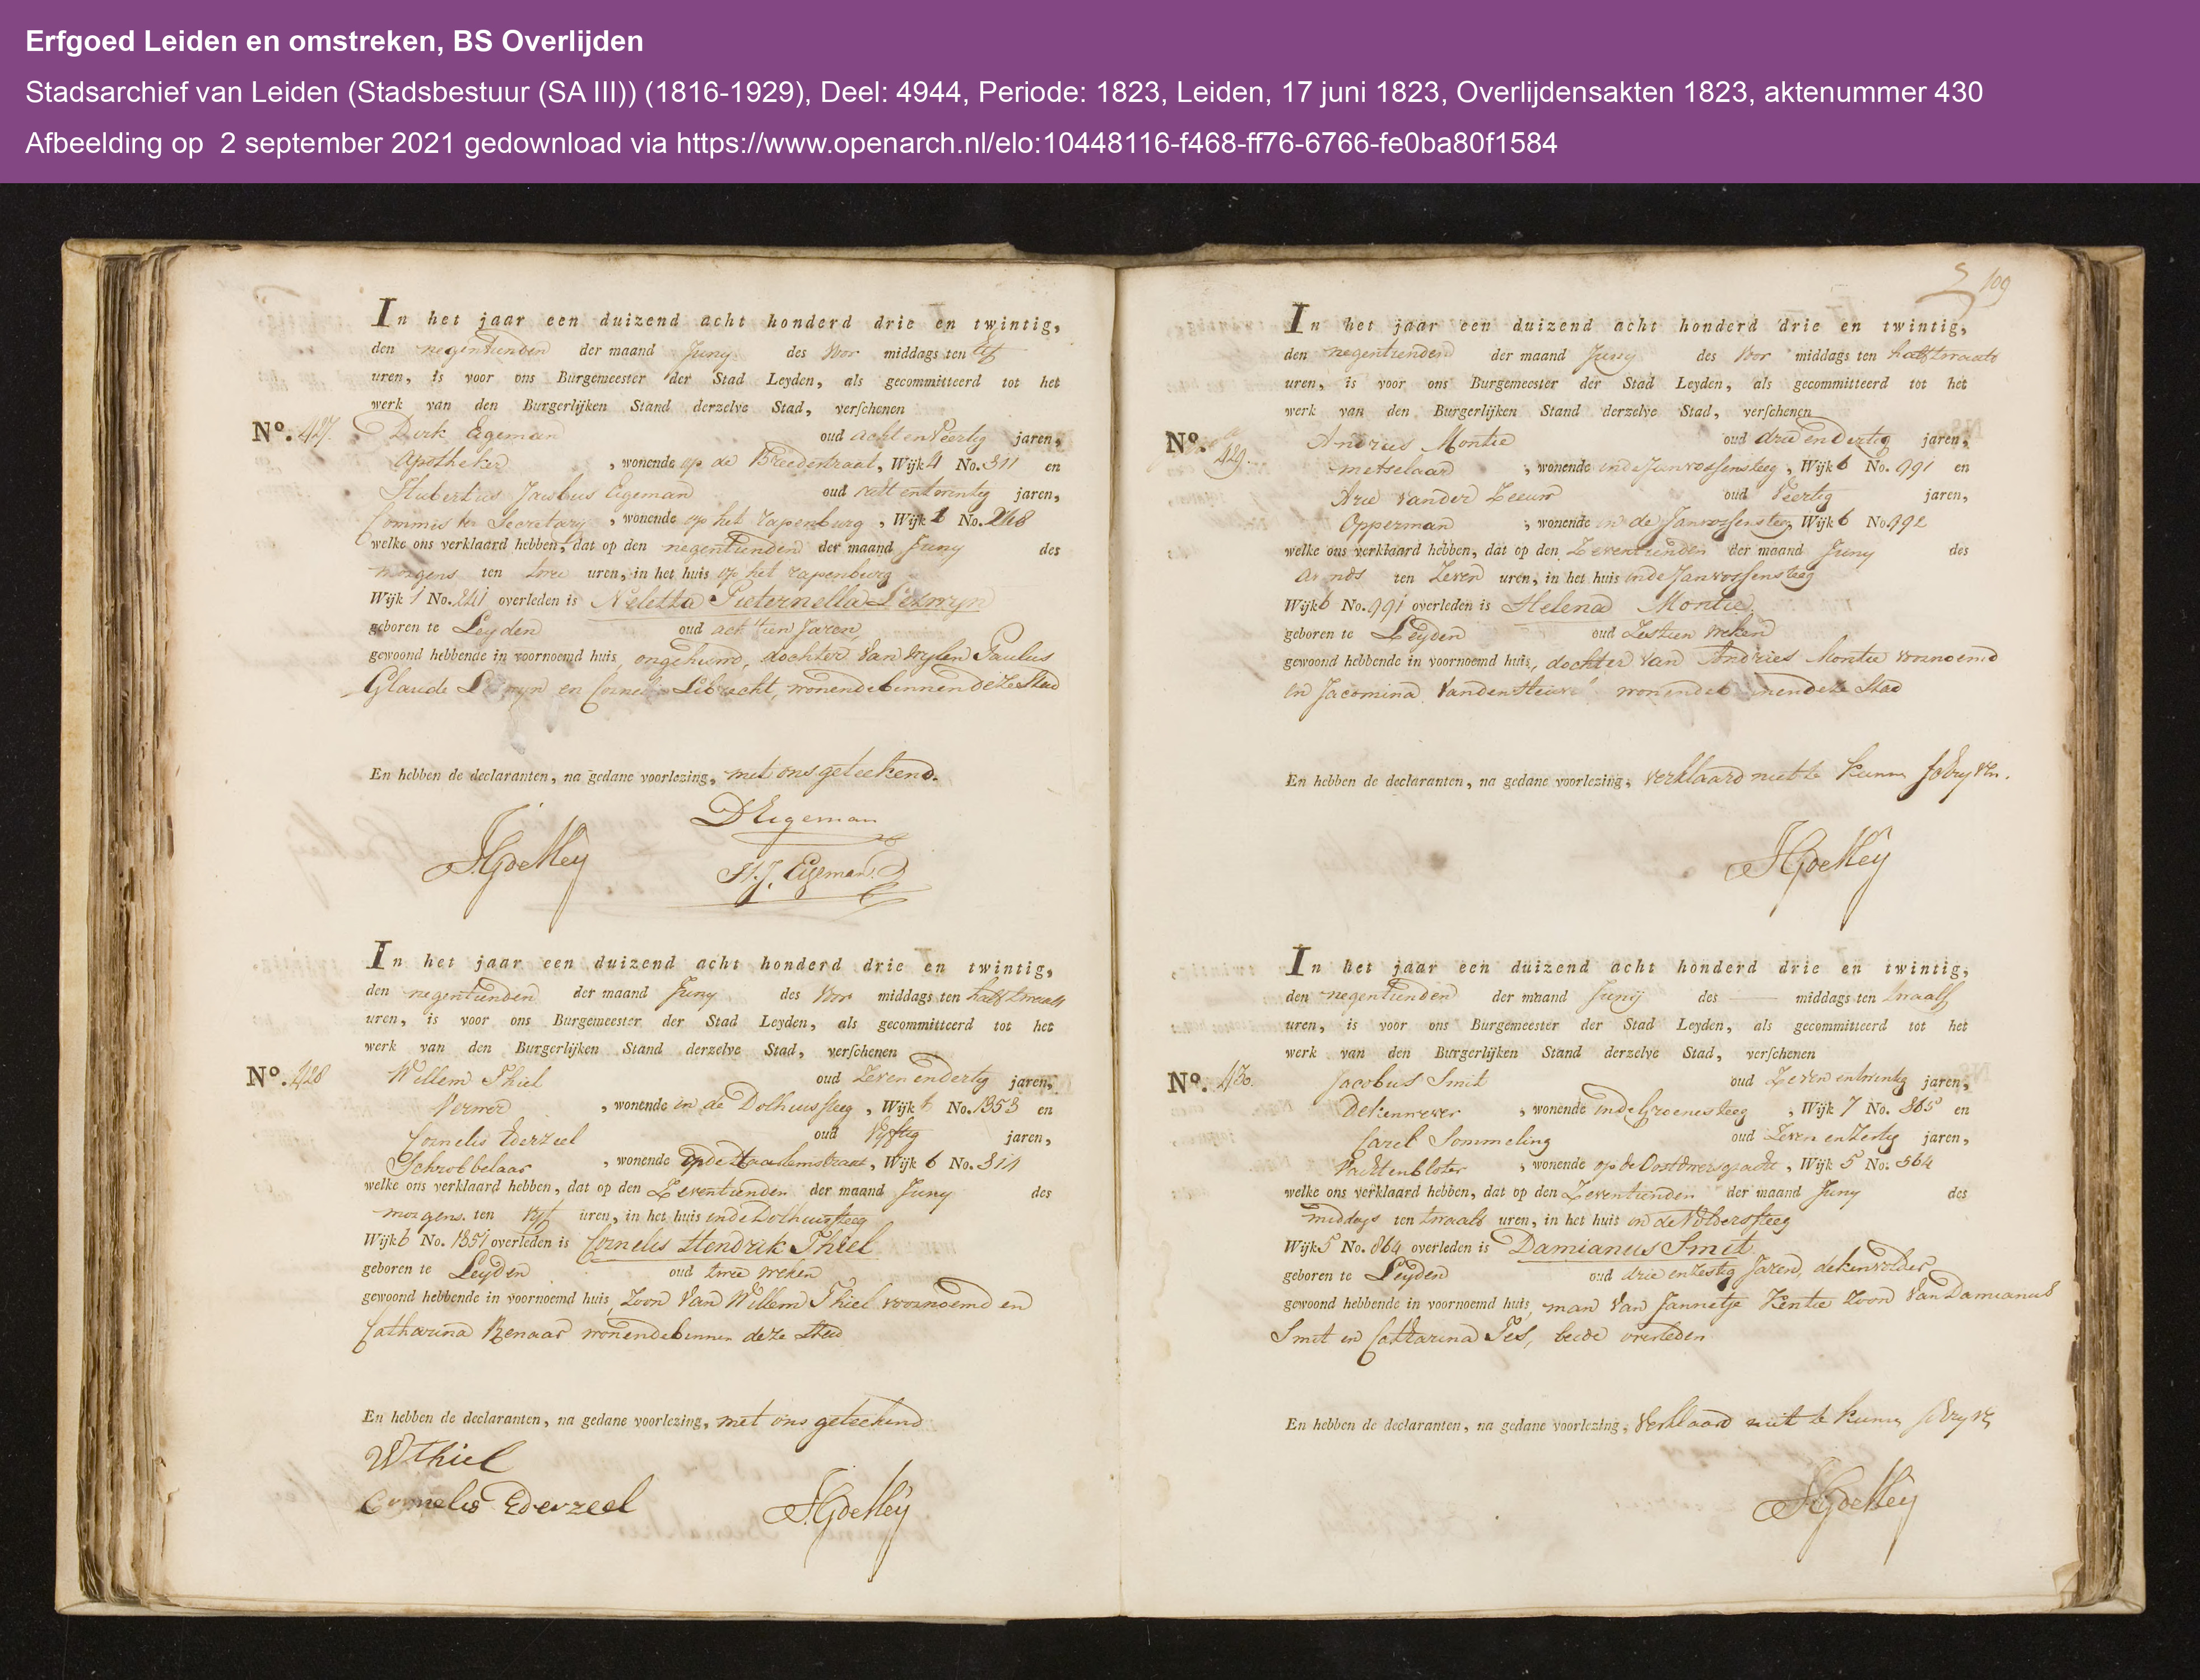 Erfgoed Leiden en omstreken, BS Overlijden
Stadsarchief van Leiden (Stadsbestuur (SA III)) (1816-1929), Deel: 4944, Periode: 1823, Leiden, 17 juni 1823, Overlijdensakten 1823, aktenummer 430
Afbeelding op 2 september 2021 gedownload via https://www.openarch.nl/elo:10448116-f468-ff76-6766-fe0ba80f1584
In het jaar een duizend acht honderd drie en twintig,
den negentienden der maand Juny des Voor middags ten elf
uren, is voor ons Burgemeester der Stad Leyden, als gecommitteerd tot het
werk van den Burgerlijken Stand derzelve Stad, verschenen
No. 427. Dirk Eigeman oud acht en Veertig jaren,
Apotheker, wonende op de Breedestraat, Wijk 4 No. 311 en
Hubertus Jacobus Eigeman oud acht en twintig jaren,
Commis ter Secretary, wonende op het rapenburg, Wijk 1 No. 268
welke ons verklaard hebben, dat op den negentienden der maand Juny des
morgens ten twee uren, in het huis op het rapenburg
Wijk 1 No. 241 overleden is Neletta Pieternella
geboren te Leyden oud acht tien Jaren
gewoond hebbende in voornoemd huis, ongehuwd, dochter van wylen Paulus
Glaude en Libracht, wonende binnen deze Stad
En hebben de declaranten, na gedane voorlezing, met ons geteekend.
DEigeman
H.J. Eigeman
In het jaar een duizend acht honderd drie en twintig,
den negentienden der maand Juny des Voor middags ten half twaalf
uren, is voor ons Burgemeester der Stad Leyden, als gecommitteerd tot het
werk van den Burgerlijken Stand derzelve Stad, verschenen
No. 428 Willem Thiel oud Zeven en dertig jaren,
Verwer, wonende in de Dolhuissteeg, Wijk 6 No. 1353 en
Cornelis Ederzeel oud Vyftig jaren,
Schrobbelaar, wonende op de Haarlemstraat, Wijk 6 No. 311
welke ons verklaard hebben, dat op den Zeventienden der maand Juny des
morgens ten vyf uren, in het huis in de Dolhuissteeg
Wijk 6 No. 1351 overleden is Cornelis Hendrik Thiel
geboren te Leyden oud twee weken
gewoond hebbende in voornoemd huis, Zoon Van Willem Thiel voornoemd en
Catharina wonende binnen deze Stad
En hebben de declaranten, na gedane voorlezing, met ons geteekend
WThiel
Cornelis Ederzeel
109
In het jaar een duizend acht honderd drie en twintig,
den negentienden der maand Juny des Voor middags ten half twaalf
uren, is voor ons Burgemeester der Stad Leyden, als gecommitteerd tot het
werk van den Burgerlijken Stand derzelve Stad, verschenen
No. 429. Andries Montie oud drie en dertig jaren,
metselaar, wonende in de Janvossensteeg, Wijk 6 No. 991 en
Arie Vander Leeuw oud Veertig jaren,
Opperman, wonende in de Janvossensteeg, Wijk 6 No. 992
welke ons verklaard hebben, dat op den Zeventienden der maand Juny des
avonds ten Zeven uren, in het huis in de Janvossensteeg
Wijk 6 No. 991 overleden is Helena Montie
geboren te Leyden oud Zestien weken
gewoond hebbende in voornoemd huis, dochter van Andries Montie voornoemd
en Jacomina Vanden wonende binnen deze Stad
En hebben de declaranten, na gedane voorlezing, verklaard niet te kunnen schryven.
In het jaar een duizend acht honderd drie en twintig,
den negentienden der maand Juny des — middags ten twaalf
uren, is voor ons Burgemeester der Stad Leyden, als gecommitteerd tot het
werk van den Burgerlijken Stand derzelve Stad, verschenen
No. 430. Jacobus Smit oud Zeven en twintig jaren,
dekenwever, wonende in de Groenesteeg, Wijk 7 No. 365 en
Carel Sommeling oud Zeven en Zestig jaren,
Vachtenbloter, wonende op de Oostdwersgracht, Wijk 5 No. 564
welke ons verklaard hebben, dat op den Zeventienden der maand Juny des
middags ten twaalf uren, in het huis in de Volderssteeg
Wijk 5 No. 864 overleden is Damianus Smit
geboren te Leyden oud drie en Zestig Jaren, dekenvolder
gewoond hebbende in voornoemd huis, man van Jannetje Kentie Zoon Van Damianus
Smit en Catharina Tes, beide overleden
En hebben de declaranten, na gedane voorlezing, Verklaard niet te kunnen schryven